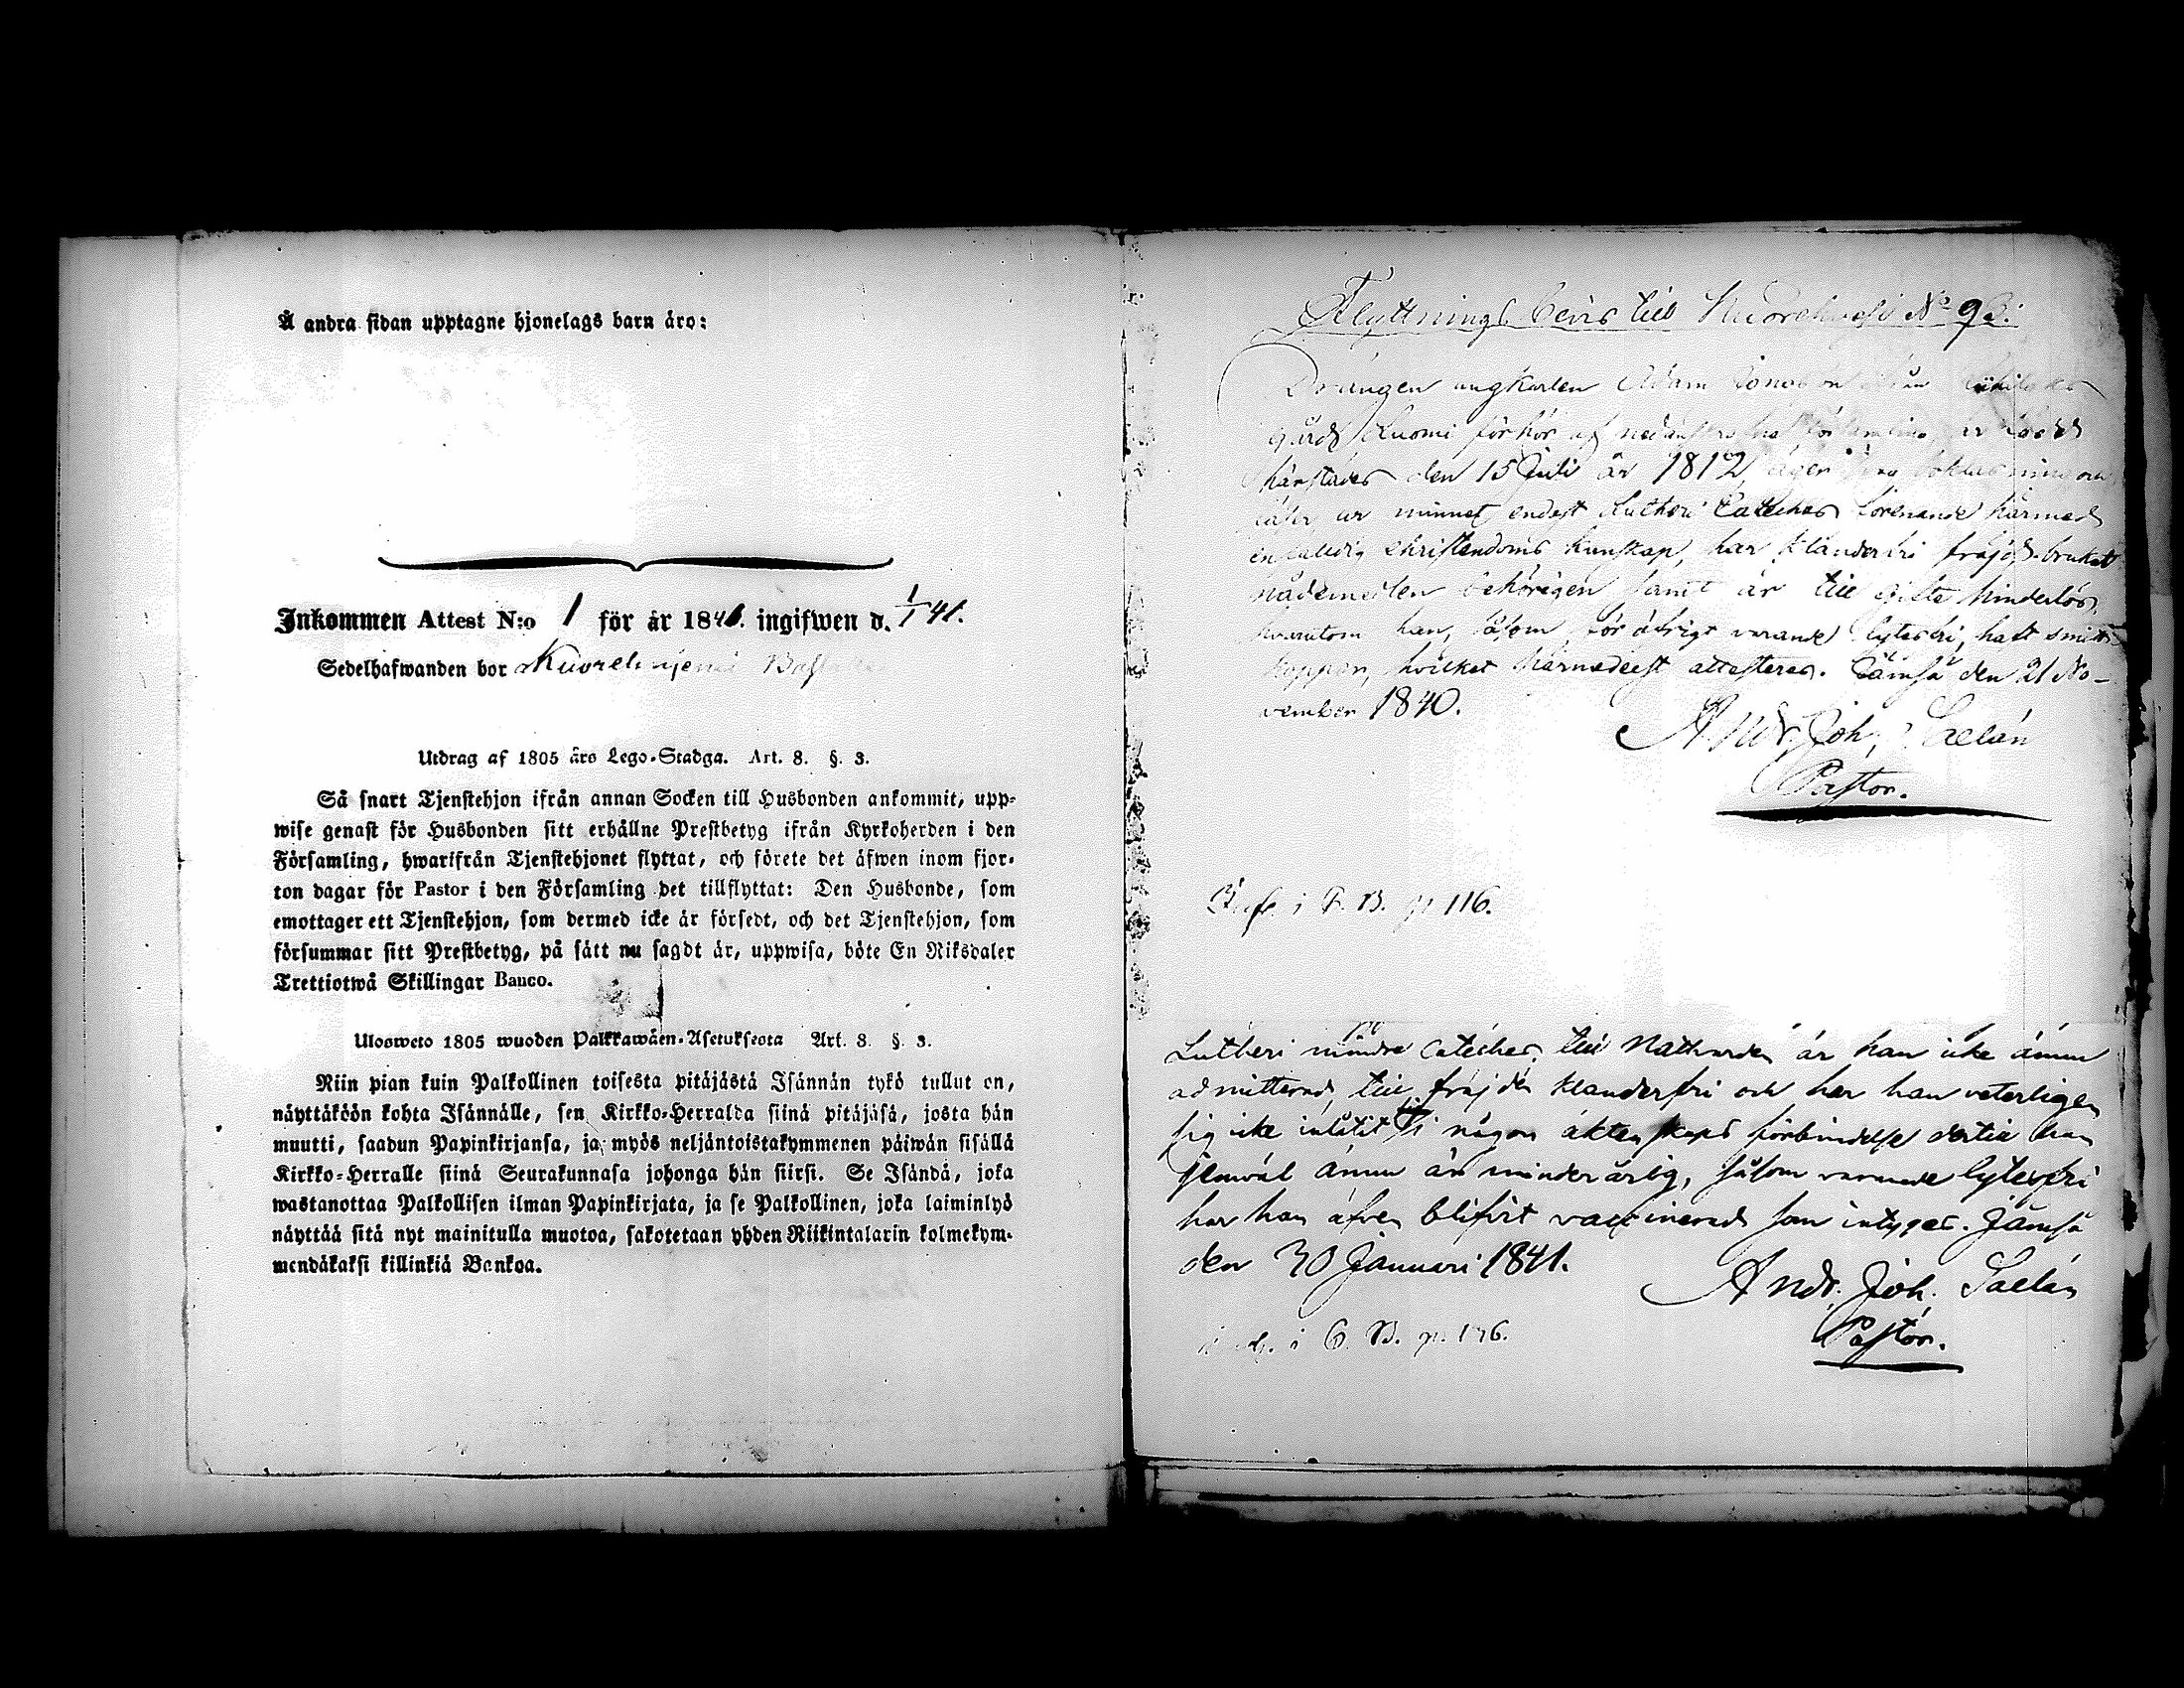 Å andra sidan upptagne hjonelags barn äro:
Inkommen Attest N:o 1 för år 1841. ingifwen d. 1/1 41.
Sedelhafwanden bor
Utdrag af 1805 års Lego-Stadga. Art. 8. §. 3.
Så snart Tjenstehjon ifrån annan Socken till Husbonden ankommit, upp-
wise genast för Husbonden sitt erhållne Prestbetyg ifrån Kyrkoherden i den
Församling, hwarifrån Tjenstehjonet flyttat, och förete det äfwen inom fjor-
ton dagar för Pastor i den Församling det tillflyttat: Den Husbonde, som
emottager ett Tjenstehjon, som dermed icke är försedt, och det Tjenstehjon, som
försummar sitt Prestbetyg, på sätt nu sagdt är, uppwisa, böte En Riksdaler
Trettiotwå Skillingar Banco.
Ulosweto 1805 wuoden Palkkawäen-Asetuksesta Art. 8. §. 3.
Niin pian kuin Palkollinen toisesta pitäjästä Isännän tykö tullut on,
näyttäköön kohta Isännälle, sen Kirkko-Herralda siinä pitäjäsä, josta hän
muutti, saadun Papinkirjansa, ja myös neljäntoistakymmenen päiwän sisällä
Kirkko-Herralle siinä Seurakunnasa johonga hän siirsi. Se Isändä, joka
wastanottaa Palkollisen ilman Papinkirjata, ja se Palkollinen, joka laiminlyö
näyttää sitä nyt mainitulla muotoa, sakotetaan yhden Riikintalarin kolmekym-
mendäkaksi killinkiä Bankoa.
Flyttnings bevis till Kuorehvesi No 93.
Drängen ungkarlen Adam Jonasson ifrån
gård Kuomi förhör af nedanskrefne församling, är född
härstädes den 15 Juli år 1812, äger
ur minnet endast Lutheri Cateches förenande härmed
enfaldig christendoms kunskap, har klanderfri fräjd, brukat
nådemedlen behörigen samt är till gifte hinderlös,
hvarutom han, såsom för öfrigt varande lytesfri, haft smitt-
koppor, hvilket härmedelst attesteras. Jämsä den 21 No-
vember 1840.
Andr. Joh. Saelán
Pastor.
i C. B. p. 116.
Lutheri mindre Cateches, till Nattvarden är han icke ännu
admitterad, till fräjden klanderfri och har han veterligen
sig icke inlåtit i någon äktenskaps förbindelse dertill han
jemväl ännu är minderårig, såsom varande lytesfri
har han äfven blifvit vaccinerad som intygas. Jämsä
den 30 Januari 1841.
Andr. Joh. Saelán
Pastor.
i C. B. p. 176.